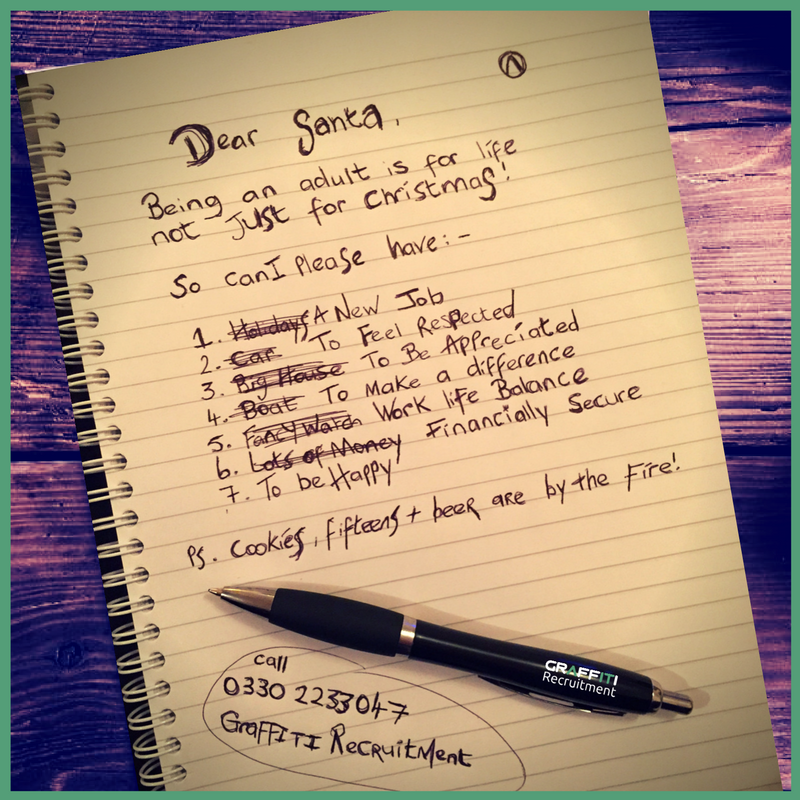 Dear Santa,
Being an adult is for life
not Just for Christmas!
So can I Please have:-
1. Holidays A New Job
2. Car To Feel Respected
3. Big House To Be Appreciated
4. Boat To Make a difference
5. Fancy Watch Work life Balance
6. Lots of Money Financially Secure
7. To be Happy
Ps. Cookies, Fifteens + beer are by the Fire!
GRAFFITI
Recruitment
call
0330 2233047
GraFFITI Recruitment